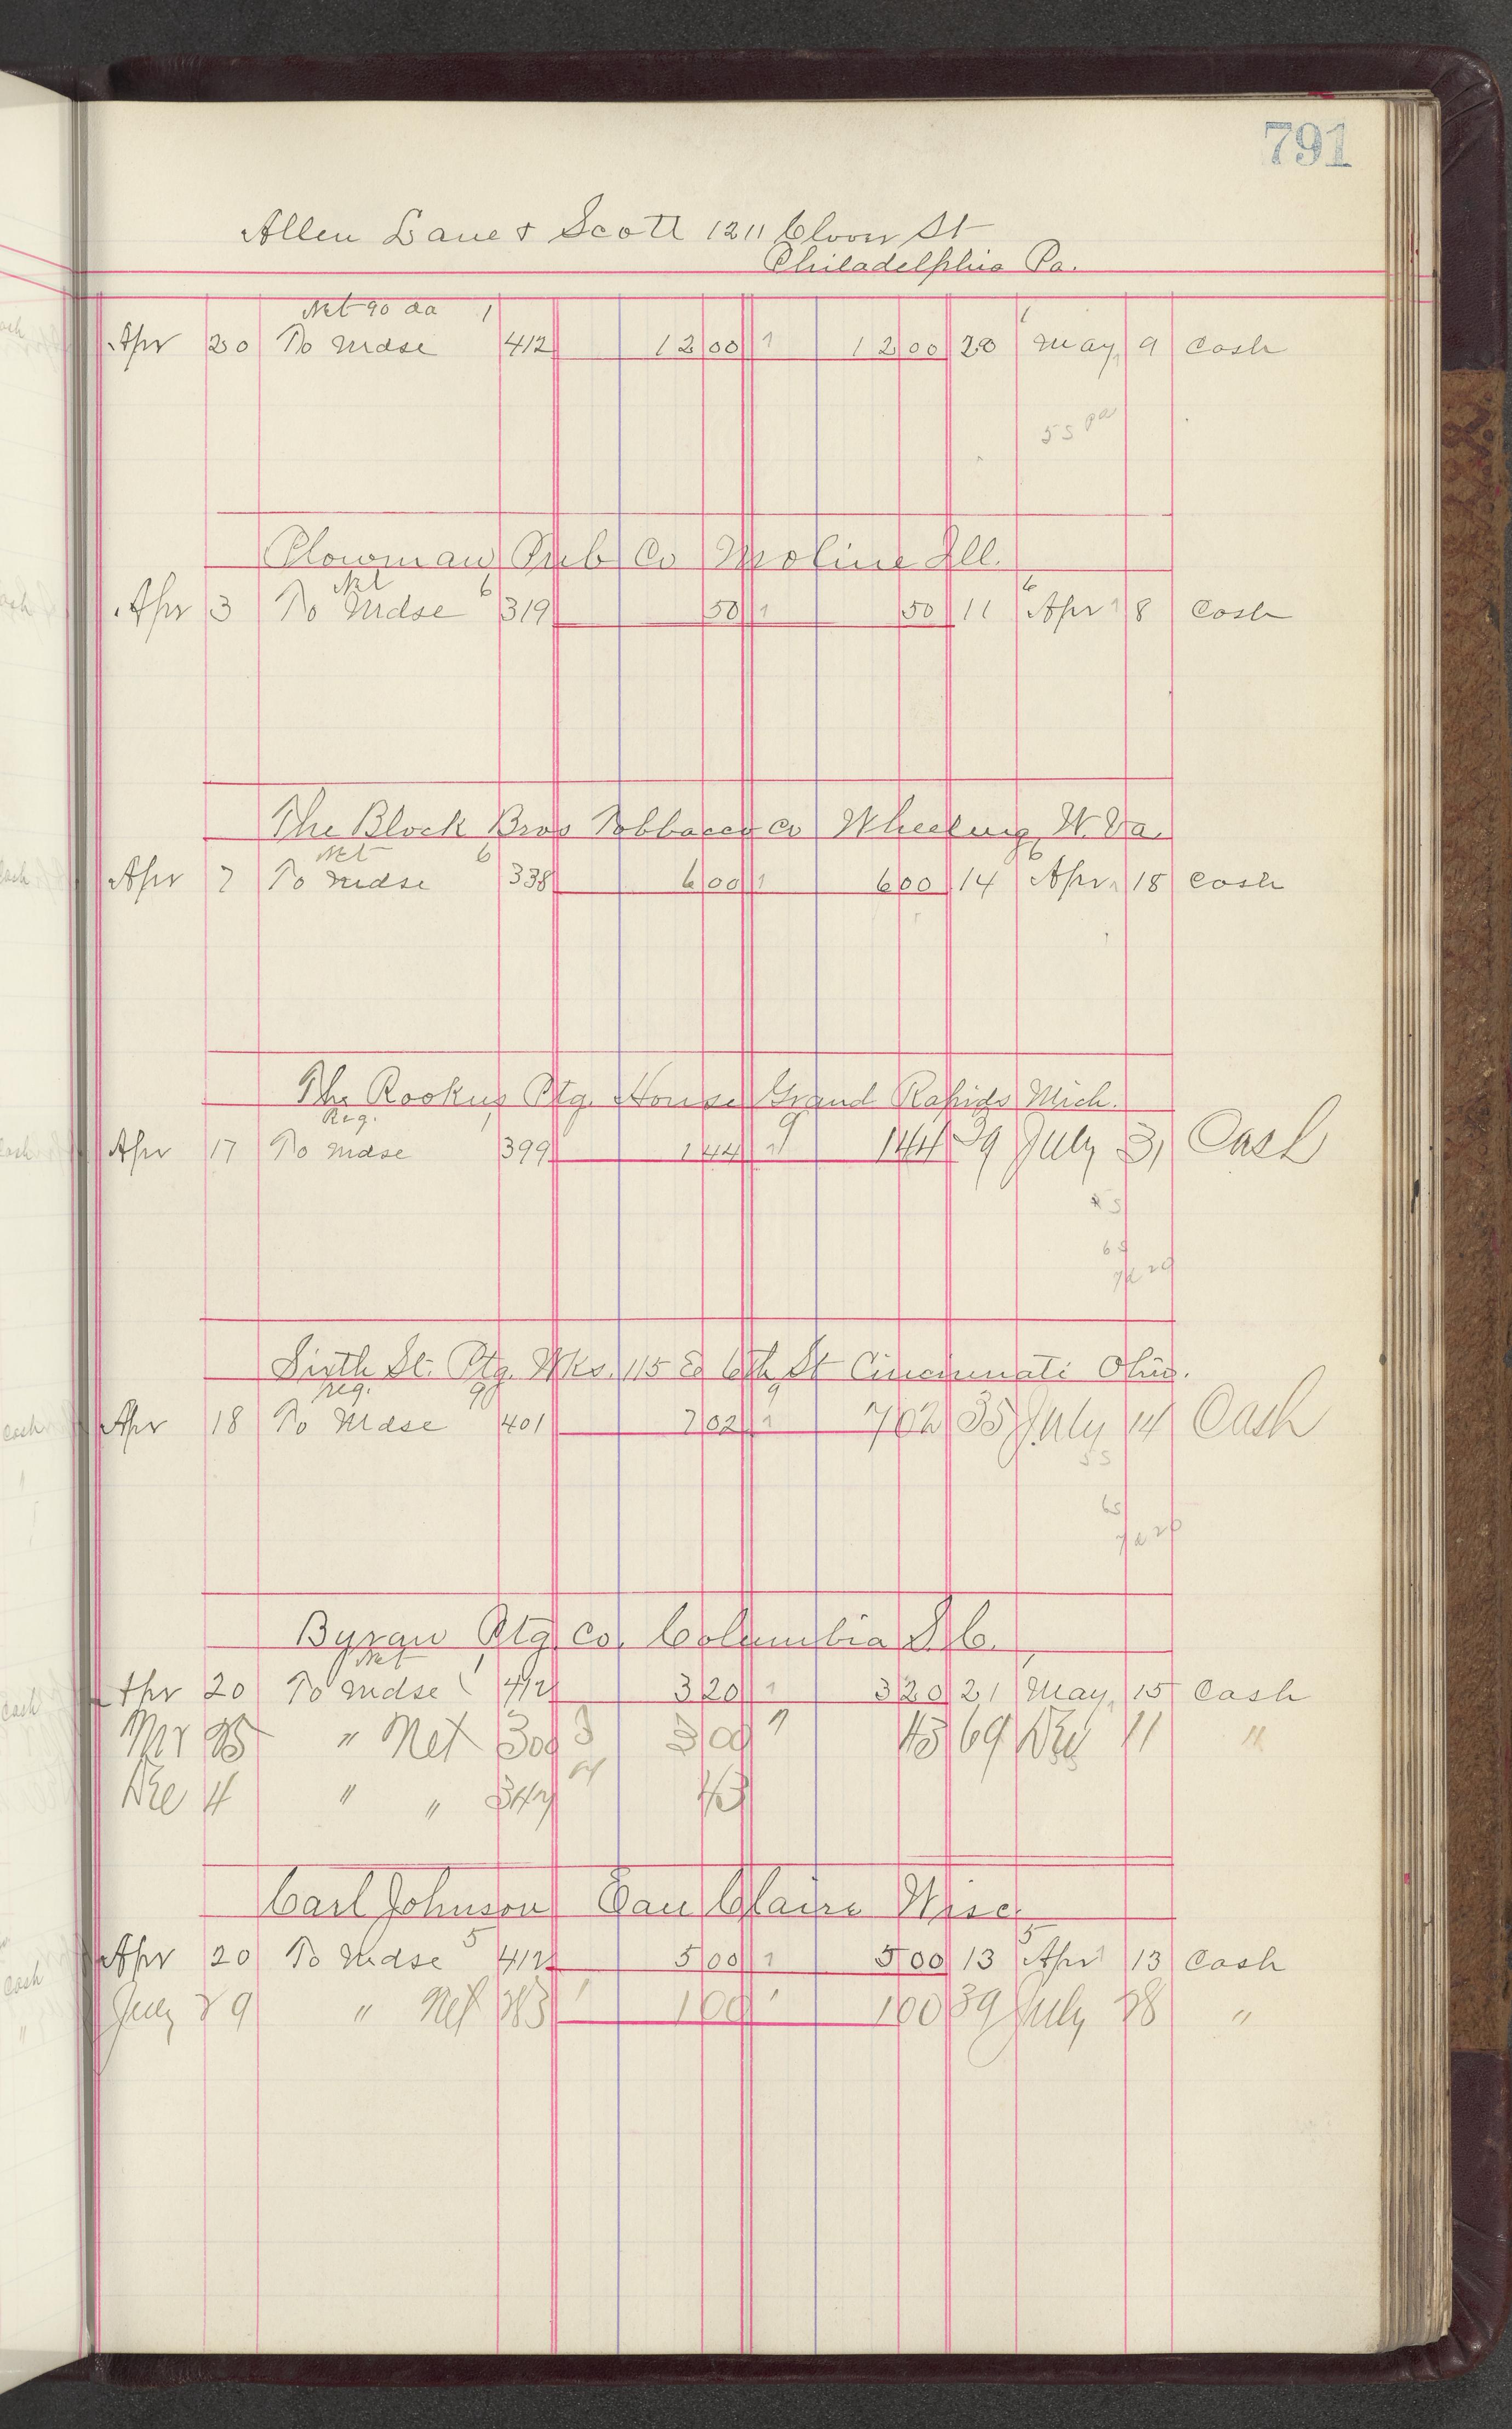 791
Allen Lane & Scott 1211 Clover St
Philadelphia Pa.
Net 90 da 1 1
Apr 20 To Mdse 412 12 00 1 12 00 20 May 9 Cash
Plowman Pub Co Moline Ill.
Net 6 6
Apr 3 To Mdse 319 50 1 50 11 Apr 8 Cash
The Block Bros Tobbacco Co Wheeling W. Va.
Net 6 6
Apr 7 To Mdse 338 6 00 1 6 00 14 Apr 18 Cash
The Rookus Ptg. House Grand Rapids Mich.
Reg. 1 9
Apr 17 To Mdse 399 1 44 1 1 44 39 July 31 Cash
Sixth St. Ptg. Wks. 115 E 6th St Cincinnati Ohio.
reg. 9 9
Apr 18 To Mdse 401 7 02 1 7 02 35 July 14 Cash
5 5
6 5
Byran Ptg Co. Columbia S.C.
Net 1 1
Apr 20 To Mdse 412 3 20 1 3 20 21 May 15 Cash
25 " Net 309 3 3 00 43 69 Dec 11 "
Dec 4 " " 347 43
Carl Johnson Eau Claire Wisc.
5 5
Apr 20 To Mdse 412 5 00 1 5 00 13 Apr 13 Cash
July 29 " Net 283 1 1 00 1 1 00 39 July 28 "